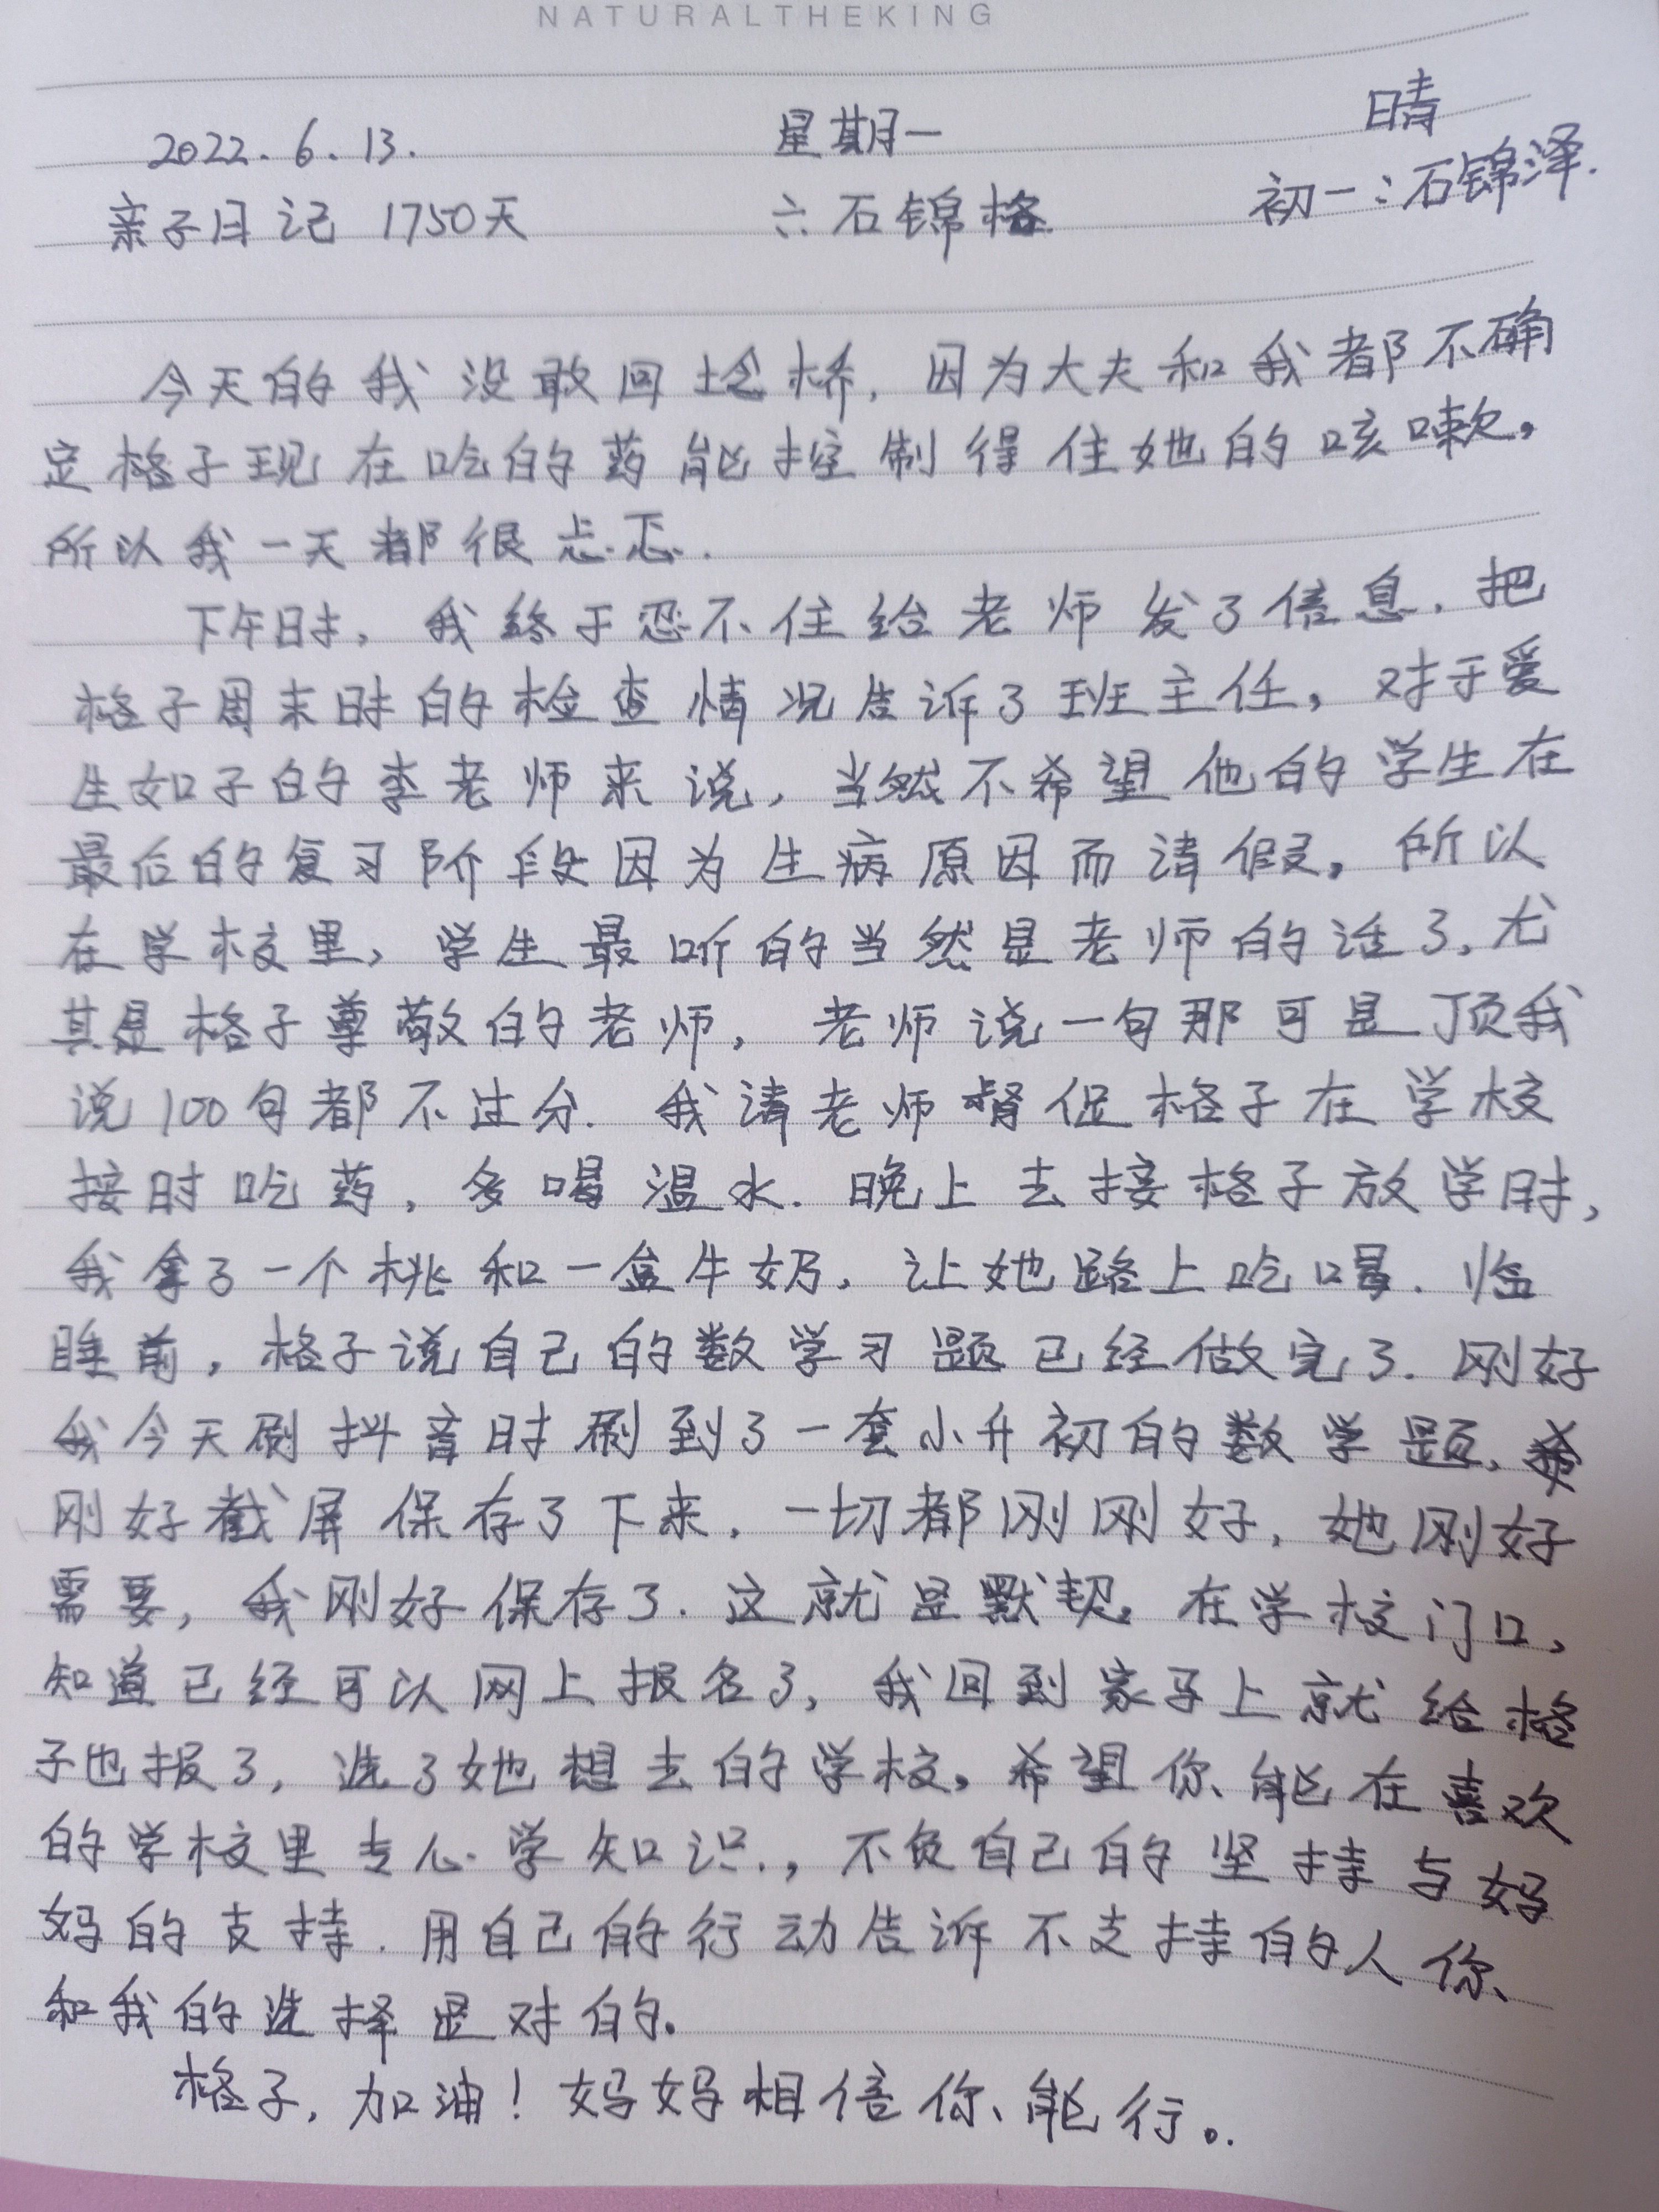 NATURALTHEKING
2022.6.13. 星期一 晴
亲子日记 1750天 六:石锦格 初一:石锦泽.
今天的我没敢回埝桥,因为大夫和我都不确
定格子现在吃的药能控制得住她的咳嗽。
所以我一天都很忐忑.
下午时,我终于忍不住给老师发了信息.把
格子周末时的检查情况告诉了班主任,对于爱
生如子的李老师来说,当然不希望他的学生在
最后的复习阶段因为生病原因而请假。所以
在学校里,学生最听的当然是老师的话了,尤
其是格子尊敬的老师,老师说一句那可是顶我
说100句都不过分.我请老师督促格子在学校
按时吃药,多喝温水.晚上去接格子放学时,
我拿了一个桃和一盒牛奶,让她路上吃喝.临
睡前,格子说自己的数学习题已经做完了.刚好
我今天刷抖音时刷到了一套小升初的数学题,
刚好截屏保存了下来.一切都刚刚好,她刚好
需要,我刚好保存了.这就是默契。在学校门口,
知道已经可以网上报名了,我回到家马上就给格
子也报了,选了她想去的学校。希望你能在喜欢
的学校里专心学知识,不负自己的坚持与妈
妈的支持.用自己的行动告诉不支持的人你
和我的选择是对的。
格子,加油!妈妈相信你能行。.